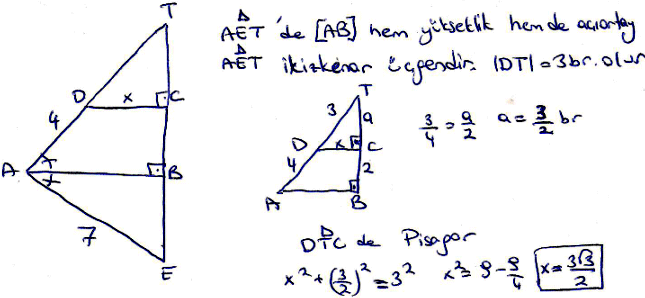 T
D x C
4
A B
7
E
AET 'de [AB] hem yükseklik hemde açıortay
AET ikizkenar üçgendir. |DT|=3br.olur
T
3 a
D x C
4 2
A B
3/4 = a/2 a=3/2 br
DTC de Pisagor
x²+(3/2)²=3² x²=9-9/4 x=3√3/2